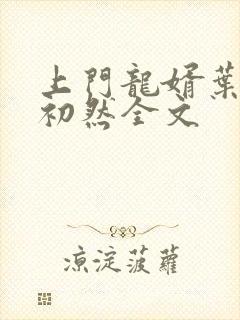 上門龍婿葉
初然全文
涼淀菠蘿